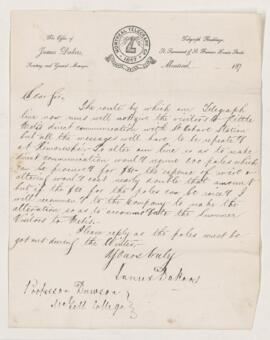 The Office of
James Dakers,
Secretary and General Manager.
MONTREAL TELEGRAPH CO
1847
Telegraph Buildings,
St. Sacrament & St. Francois Xavier Streets
Montreal 187
Dear Sir,
The route by which our Telegraph
line now runs will not give the visitors to Little
Metis direct communication with St Octave Station
but all the messages will have to be repeated
at Rimouski. To alter our line so as to make
direct communication would require 200 poles which
can be procured for $40. The expense of wire &
altering would cost nearly double that amount
but if the $40 for the poles can be raised I
will recommend to the Company to make the
alteration so as to accommodate the Summer
Visitors to Metis.
Please reply as the poles must be
got out during the Winter.
Yours truly
James Dakers
Professor Dawson
McGill College